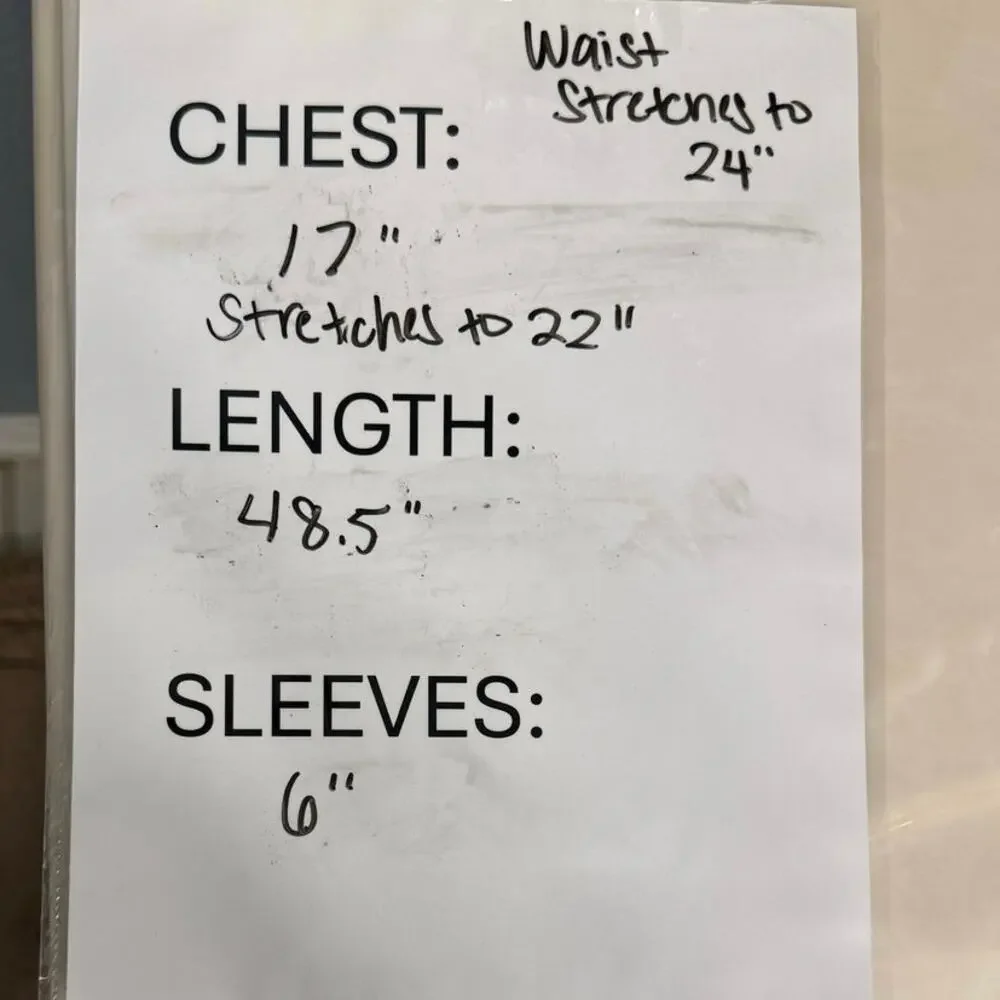 Waist
Stretches to
24"
CHEST:
17"
Stretches to 22"
LENGTH:
48.5"
SLEEVES:
6"